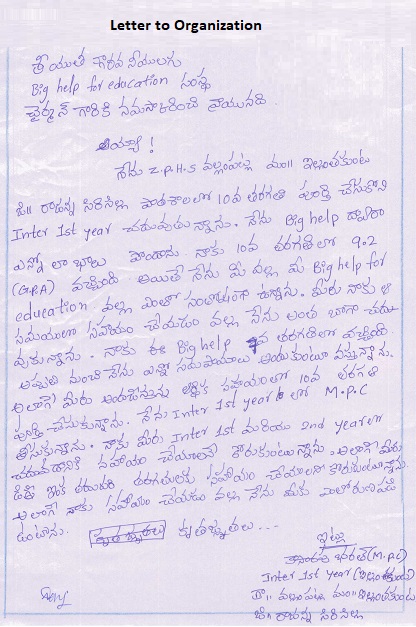 Letter to Organization
శ్రీయుత గౌరవనీయులగు
Big help for education సంస్థ
ఛైర్మన్ గారికి నమస్కరించి వ్రాయునది.
అయ్యా!
నేను Z.P.H.S వల్లంపట్ల మం॥ ఇల్లంతకుంట
జి॥ రాజన్న సిరిసిల్ల పాఠశాలలో 10వ తరగతి పూర్తి చేసుకొని
Inter 1st year చదువుతున్నాను. నేను Big help ద్వారా
ఎన్నో లాభాలు పొందాను. నాకు 10వ తరగతిలో 9.2
(G.P.A) వచ్చింది అయితే నేను మీ వల్ల మీ Big help for
education వల్ల ఎంతో సంతోషంగా ఉన్నాను. మీరు నాకు ఆ
సమయంలో సహాయం చేయడం వల్ల నేను అంత బాగా చదు-
వుకున్నాను. నాకు ఈ Big help తరగతిలో వచ్చింది.
అప్పటి నుంచి నేను ఎన్నో సదుపాయాలు అందుకుంటూ వస్తున్నాను.
అలాగే మీరు ఆర్థిక సహాయంతో 10వ తరగతి
పూర్తి చేసుకున్నాను. నేను Inter 1st year లో M.P.C
తీసుకున్నాను. నాకు మీరు Inter 1st మరియు 2nd yearలో
చదవడానికి సహాయం చేయాలని కోరుకుంటున్నాను. అలాగే మీరు
ఇంక తరువాత తరగతులకు సహాయం చేయాలని కోరుకుంటున్నాను.
అలాగే నాకు సహాయం చేయడం వల్ల నేను మీకు ఎంతో రుణపడి
ఉంటాను. కృతజ్ఞతలు...
ఇట్లు
భరత్ (M.P.C)
Inter 1st year (ఇల్లంతకుంట)
గ్రా॥ వల్లంపట్ల మం॥ ఇల్లంతకుంట
జి॥ రాజన్న సిరిసిల్ల